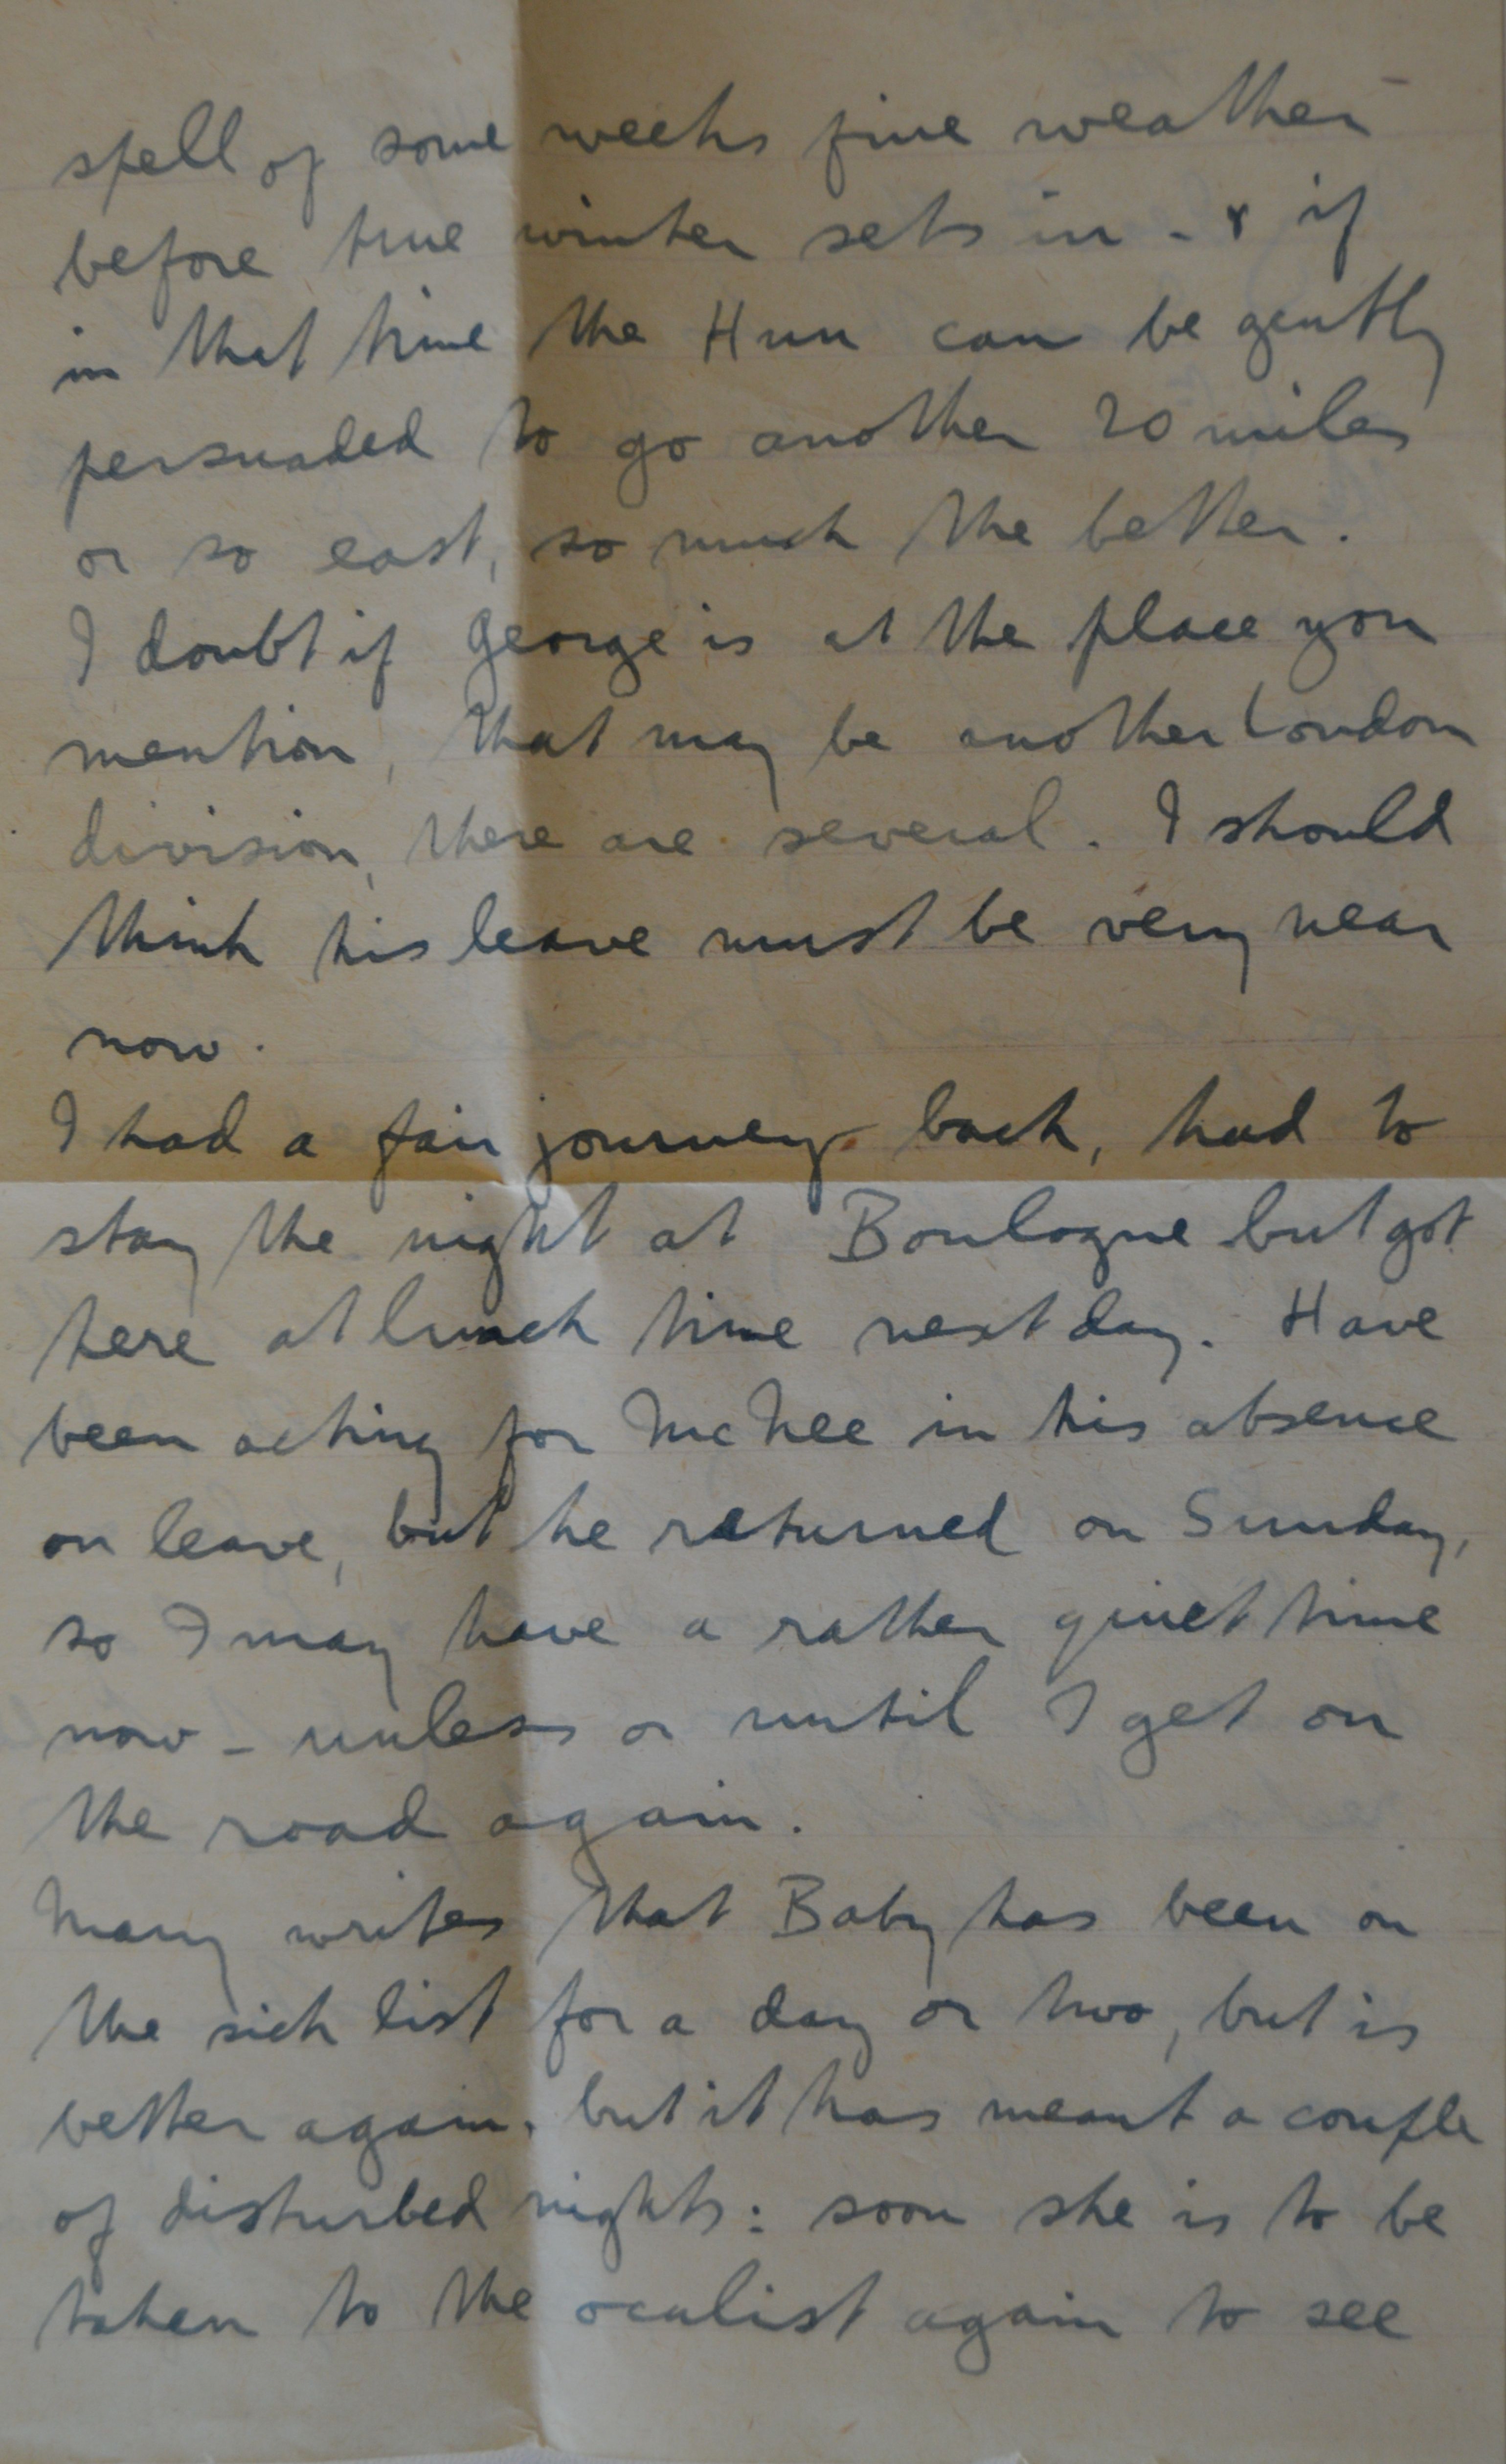 spell of some weeks fine weather
before true winter sets in - & if
in that time the Hun can be gently
persuaded to go another 20 miles
or so east, so much the better.
I doubt if George is at the place you
mention, that may be another London
division, there are several. I should
think his leave must be very near
now.
I had a fair journey back, had to
stay the night at Boulogne but got
here at lunch time next day. Have
been acting for McNee in his absence
on leave, but he returned on Sunday,
so I may have a rather quiet time
now - unless or until I get on
the road again.
Mary writes that Baby has been on
the sick list for a day or two, but is
better again, but it has meant a couple
of disturbed nights: soon she is to be
taken to the oculist again to see